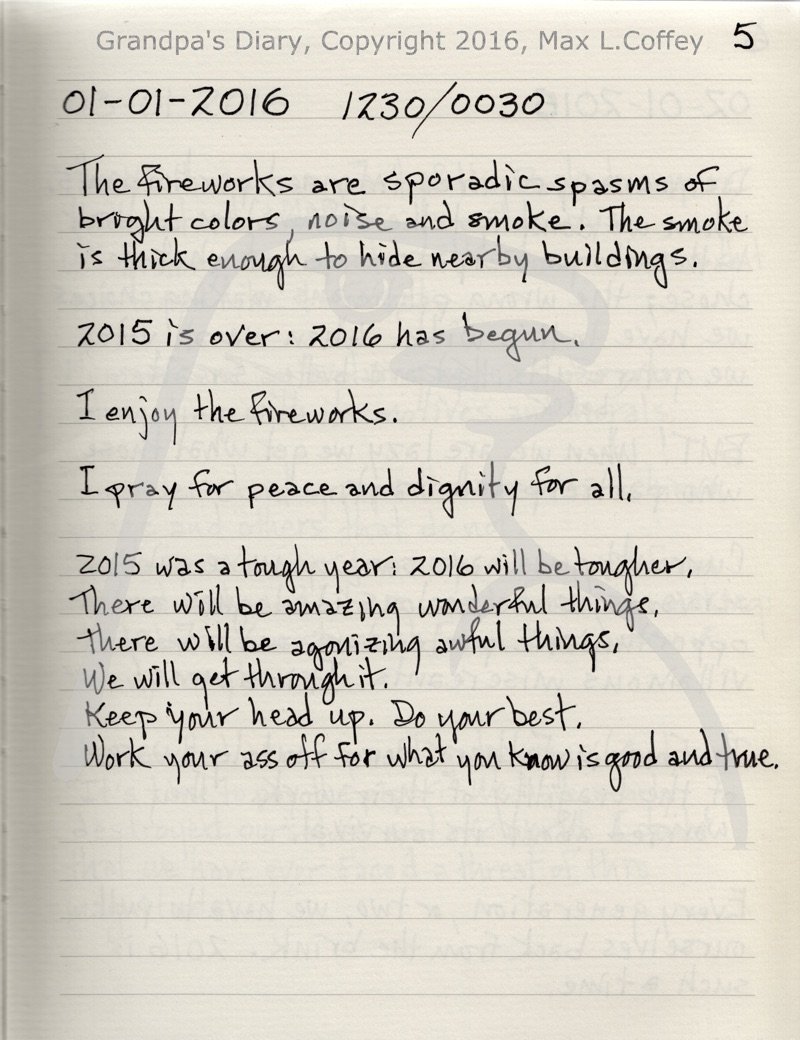 Grandpa's Diary, Copyright 2016, Max L.Coffey 5
01-01-2016 1230/0030
The fireworks are sporadic spasms of
bright colors, noise and smoke. The smoke
is thick enough to hide nearby buildings.
2015 is over: 2016 has begun.
I enjoy the fireworks.
I pray for peace and dignity for all.
2015 was a tough year: 2016 will be tougher.
There will be amazing wonderful things.
there will be agonizing awful things.
We will get through it.
Keep your head up. Do your best.
Work your ass off for what you know is good and true.